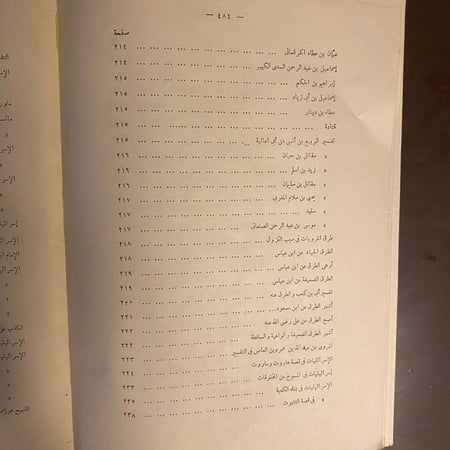 — ٤٨٤ —
صفحة
عثمان بن عطاء الخراسانى ... ... ... ... ... ... ... ... ٢١٤
إسماعيل بن عبد الرحمن السدى الكبير ... ... ... ... ... ... ٢١٤
إبراهيم بن الحكم ... ... ... ... ... ... ... ... ٢١٥
إسماعيل بن أبى زياد ... ... ... ... ... ... ... ... ٢١٥
عطاء بن دينار ... ... ... ... ... ... ... ... ٢١٥
قتادة ... ... ... ... ... ... ... ... ٢١٥
تفسير الربيع بن أنس عن أبى العالية ... ... ... ... ... ... ٢١٥
» مقاتل بن حيان ... ... ... ... ... ... ... ٢١٦
» زيد بن أسلم ... ... ... ... ... ... ... ٢١٦
» مقاتل بن سليمان ... ... ... ... ... ... ... ٢١٦
» يحيى بن سلام المغربى ... ... ... ... ... ... ٢١٧
» سنيد ... ... ... ... ... ... ... ٢١٧
» موسى بن عبد الرحمن الصنعانى ... ... ... ... ... ٢١٧
طرق المرويات فى سبب النزول ... ... ... ... ... ... ٢١٨
الطرق الجياد عن ابن عباس ... ... ... ... ... ... ٢١٨
أوهى الطرق عن ابن عباس ... ... ... ... ... ... ٢١٩
الطرق الضعيفة عن ابن عباس ... ... ... ... ... ... ٢١٩
تفسير أبى بن كعب والطرق عنه ... ... ... ... ... ... ٢٢٠
أشهر الطرق عن ابن مسعود ... ... ... ... ... ... ٢٢١
أصح الطرق عن على رضى الله عنه ... ... ... ... ... ٢٢٢
أشهر الطرق الضعيفة والواهية والساقطة ... ... ... ... ... ٢٢٢
المروى عن عبد الله بن عمرو بن العاص فى التفسير ... ... ... ٢٢٣
الإسرائيليات فى قصة هاروت وماروت ... ... ... ... ٢٢٤
إسرائيليات فى المسوخ من المخلوقات ... ... ... ... ٢٣٢
الإسرائيليات فى بناء الكعبة ... ... ... ... ... ٢٣٥
» فى قصة التابوت ... ... ... ... ... ٢٣٨